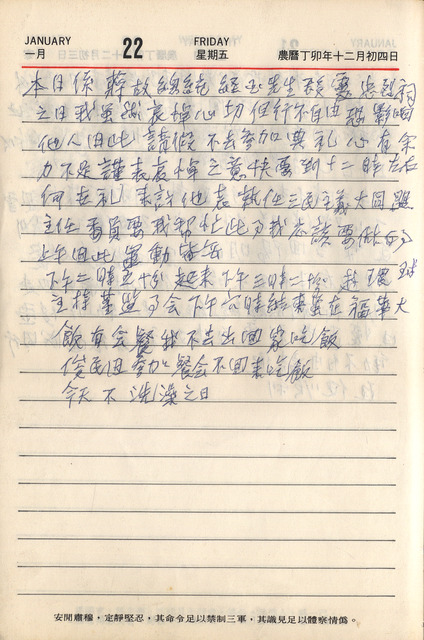 JANUARY 22 FRIDAY 農曆丁卯年十二月初四日
一月 星期五
本日係 故總統 經國先生 靈忠烈祠
之日我雖然哀悼心切但行不自由恐影响
他人因此請假不去參加典礼心有余
力不足謹表哀悼之意快要到十二時左右
何 礼來訪他 就任三民主義大同盟
主任委員要我帮忙此乃我應該要做的
上午因此運動
下午二時五十分起來下午三時二十分 環球
主持 監事会下午六時結束 在福華大
飯店会餐我不去出回家吃飯
俊 因參加餐会不回來吃飯
今天不洗澡之日
安閒肅穆，定靜堅忍，其命令足以禁制三軍，其識見足以體察情僞。